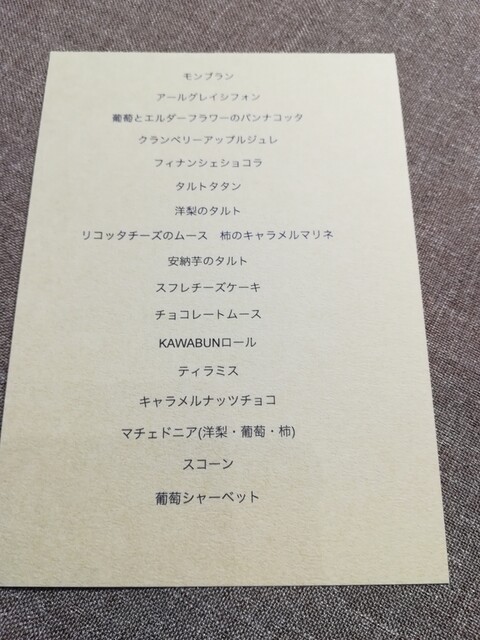 モンブラン
アールグレイシフォン
葡萄とエルダーフラワーのパンナコッタ
クランベリーアップルジュレ
フィナンシェショコラ
タルトタタン
洋梨のタルト
リコッタチーズのムース　柿のキャラメルマリネ
安納芋のタルト
スフレチーズケーキ
チョコレートムース
KAWABUNロール
ティラミス
キャラメルナッツチョコ
マチェドニア(洋梨・葡萄・柿)
スコーン
葡萄シャーベット